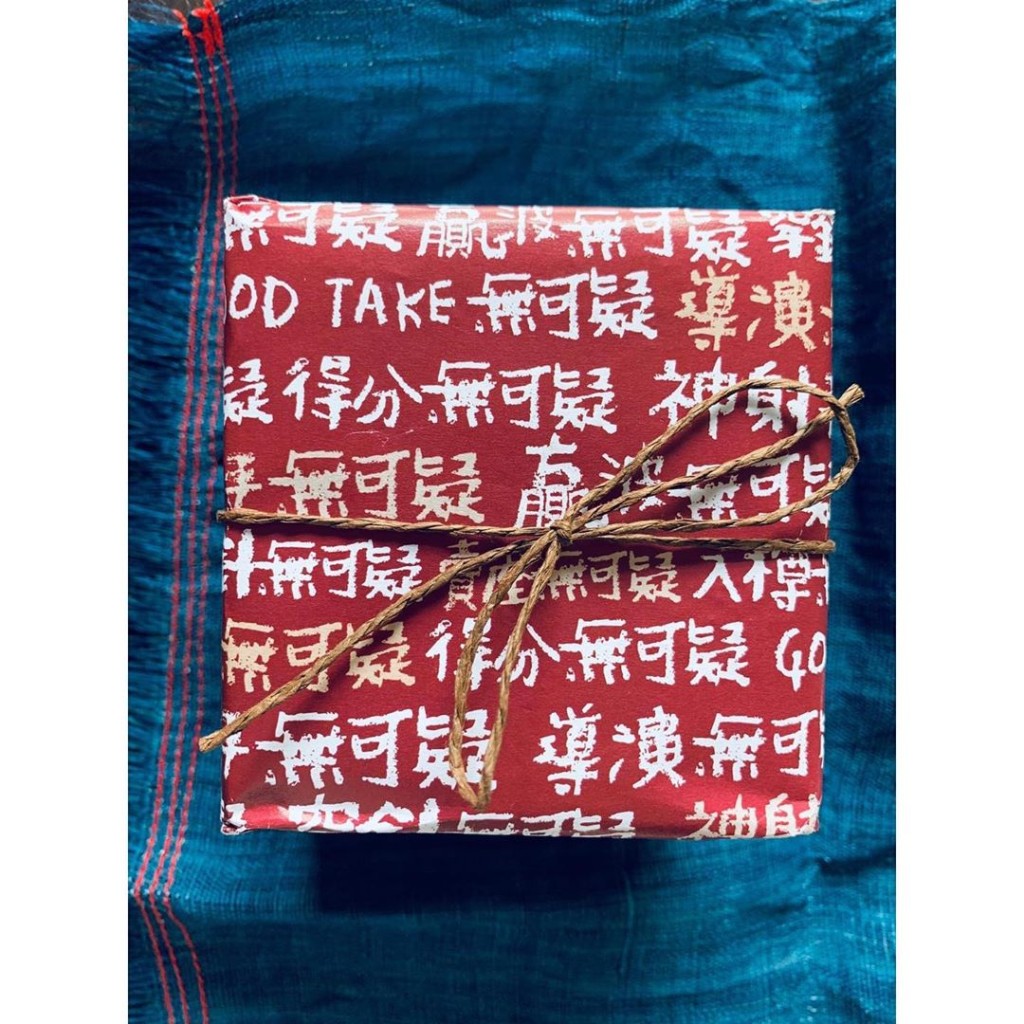 無可疑 贏波無可疑
OD TAKE 無可疑 導演
疑 得分無可疑 神射
無可疑 贏波無可疑
無可疑 賣座無可疑 入樽
無可疑 得分無可疑 GO
無可疑 導演無可
無可疑 神射